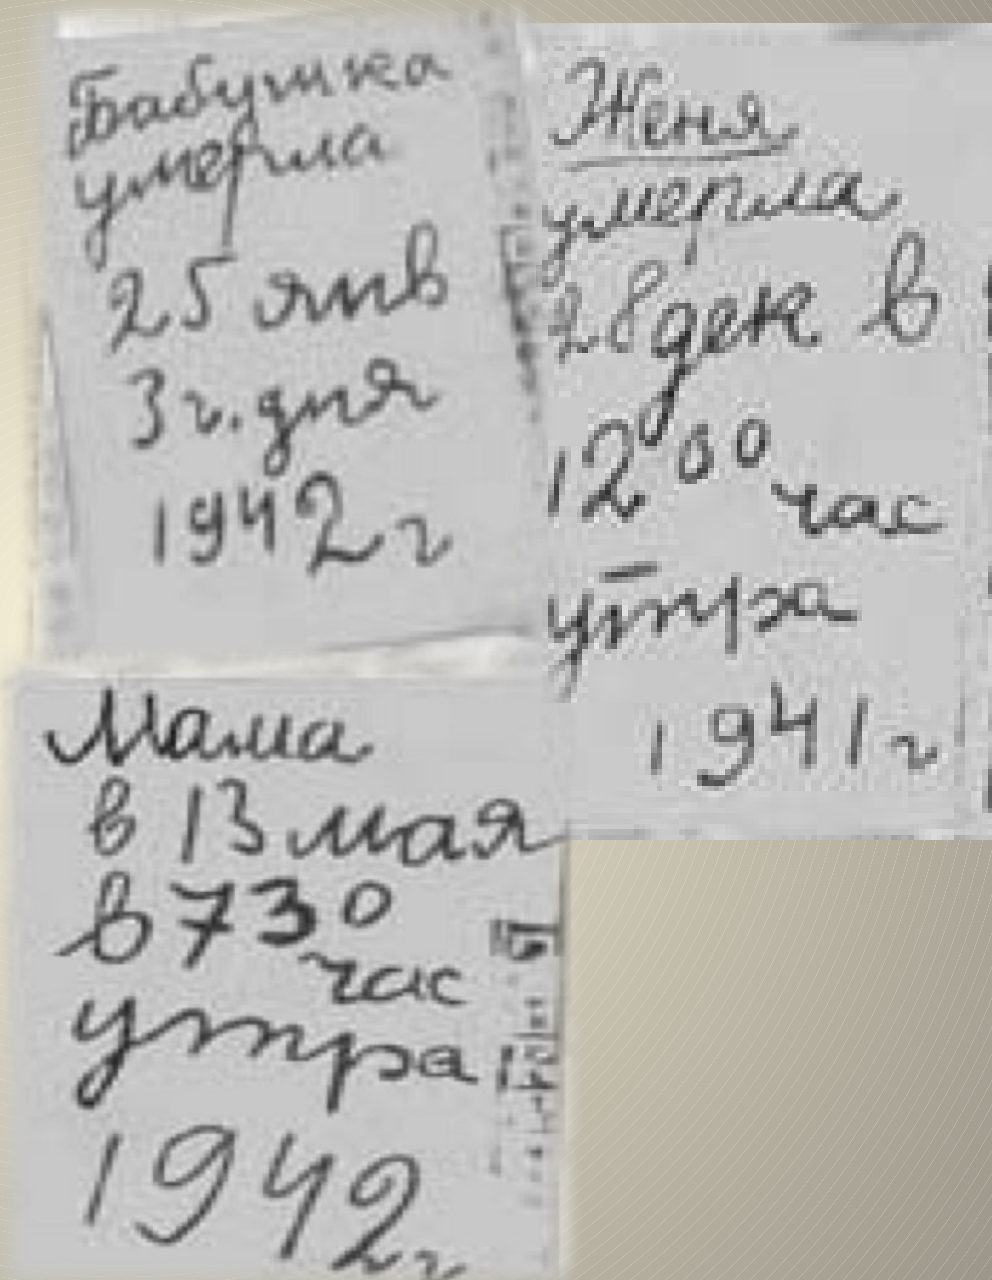 Бабушка
умерла
25 янв
3 ч. дня
1942 г
Женя
умерла
28 дек в
12 00 час
утра
1941 г
Мама
в 13 мая
в 7 30
час
утра
1942 г